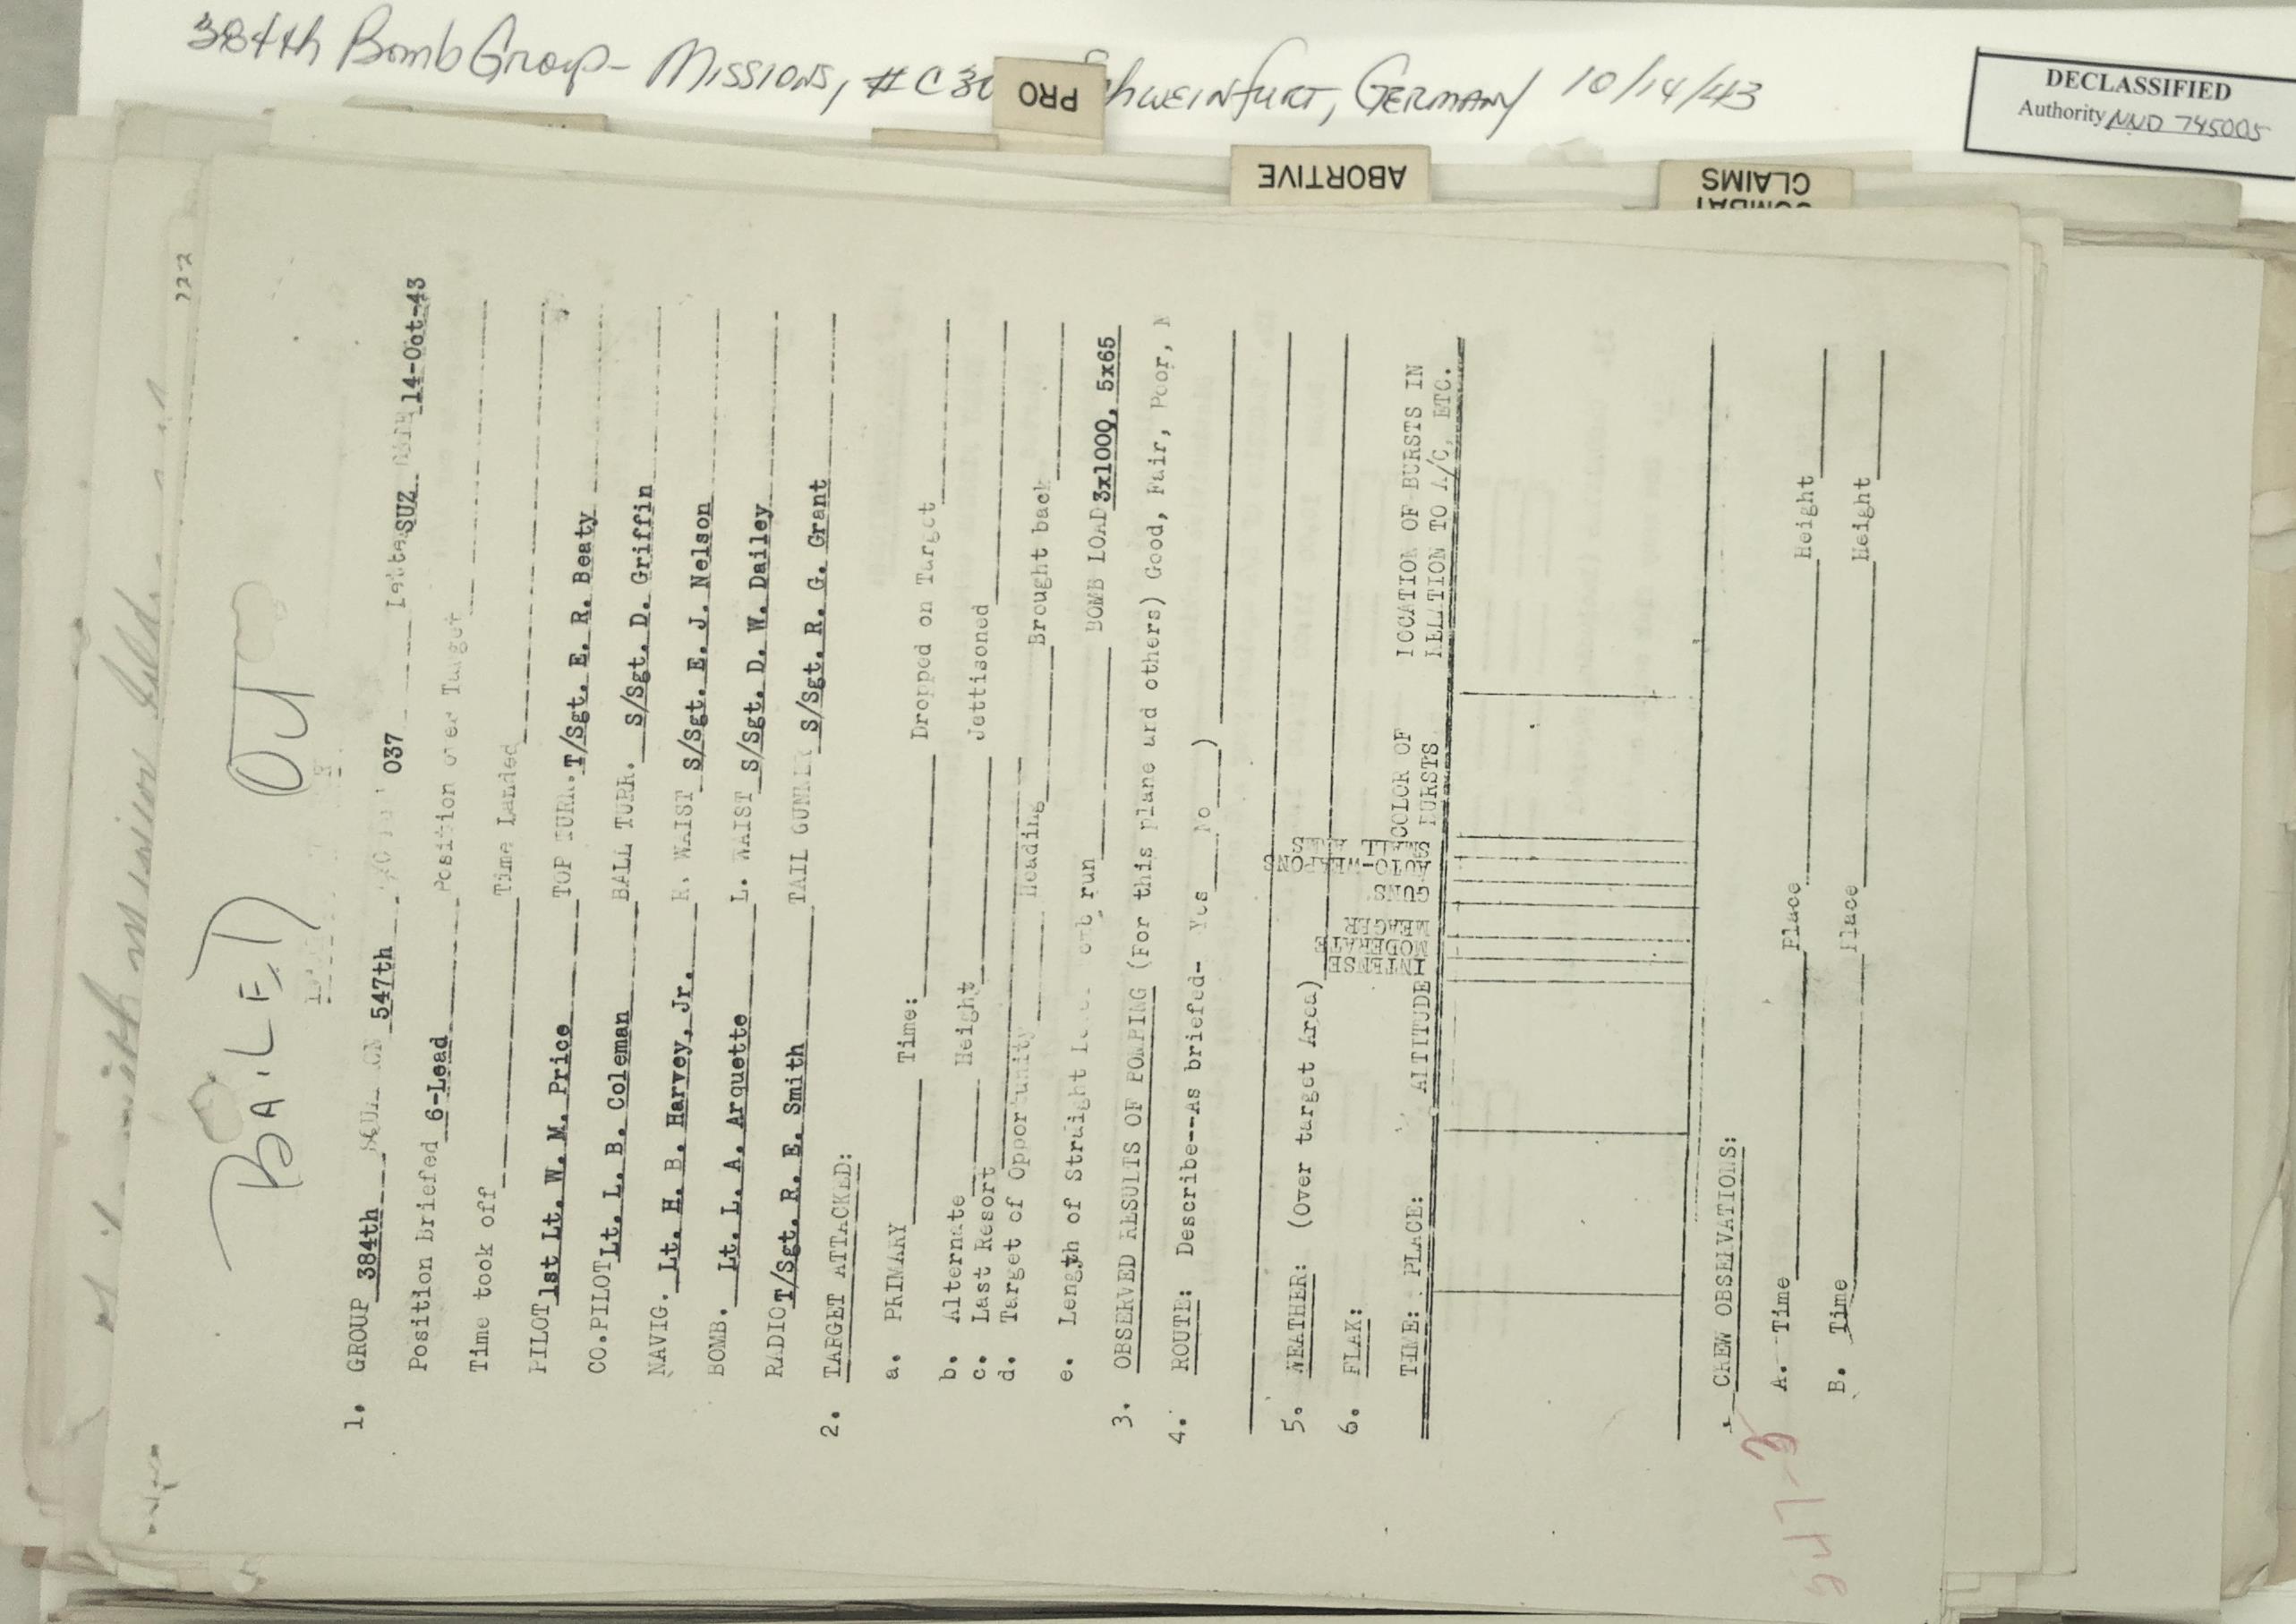 384th Bomb Group - Missions, # C30 Schweinfurt, Germany 10/14/43
DECLASSIFIED
Authority NND 745005
PRO
ABORTIVE
COMBAT
CLAIMS
722
BAILED OUT
1. GROUP 384th SQUADRON 547th 037 Letter SUZ DATE 14-Oct-43
Position briefed 6-Lead Position over Target
Time took off Time Landed
PILOT 1st Lt. W. M. Price TOP TURR. T/Sgt. E. R. Beaty
CO.PILOT Lt. L. B. Coleman BALL TURR. S/Sgt. D. Griffin
NAVIG. Lt. H. B. Harvey, Jr. R. WAIST S/Sgt. E. J. Nelson
BOMB. Lt. L. A. Arquette L. WAIST S/Sgt. D. W. Dailey
RADIO T/Sgt. R. E. Smith TAIL GUNNER S/Sgt. R. G. Grant
2. TARGET ATTACKED:
a. PRIMARY Time: Dropped on Target
b. Alternate Height Jettisoned
c. Last Resort
d. Target of Opportunity Heading Brought back
e. Length of Straight run BOMB LOAD 3x1000, 5x65
3. OBSERVED RESULTS OF BOMBING (For this plane and others) Good, Fair, Poor, N
4. ROUTE: Describe--As briefed- Yes No )
5. WEATHER: (Over target Area)
6. FLAK:
TIME: PLACE: ALTITUDE INTENSE MODERATE MEAGER GUNS AUTO-WEAPONS SMALL ARMS COLOR OF BURSTS LOCATION OF BURSTS IN RELATION TO A/C, ETC.
CREW OBSERVATIONS:
A. Time Place Height
B. Time Place Height
547-3